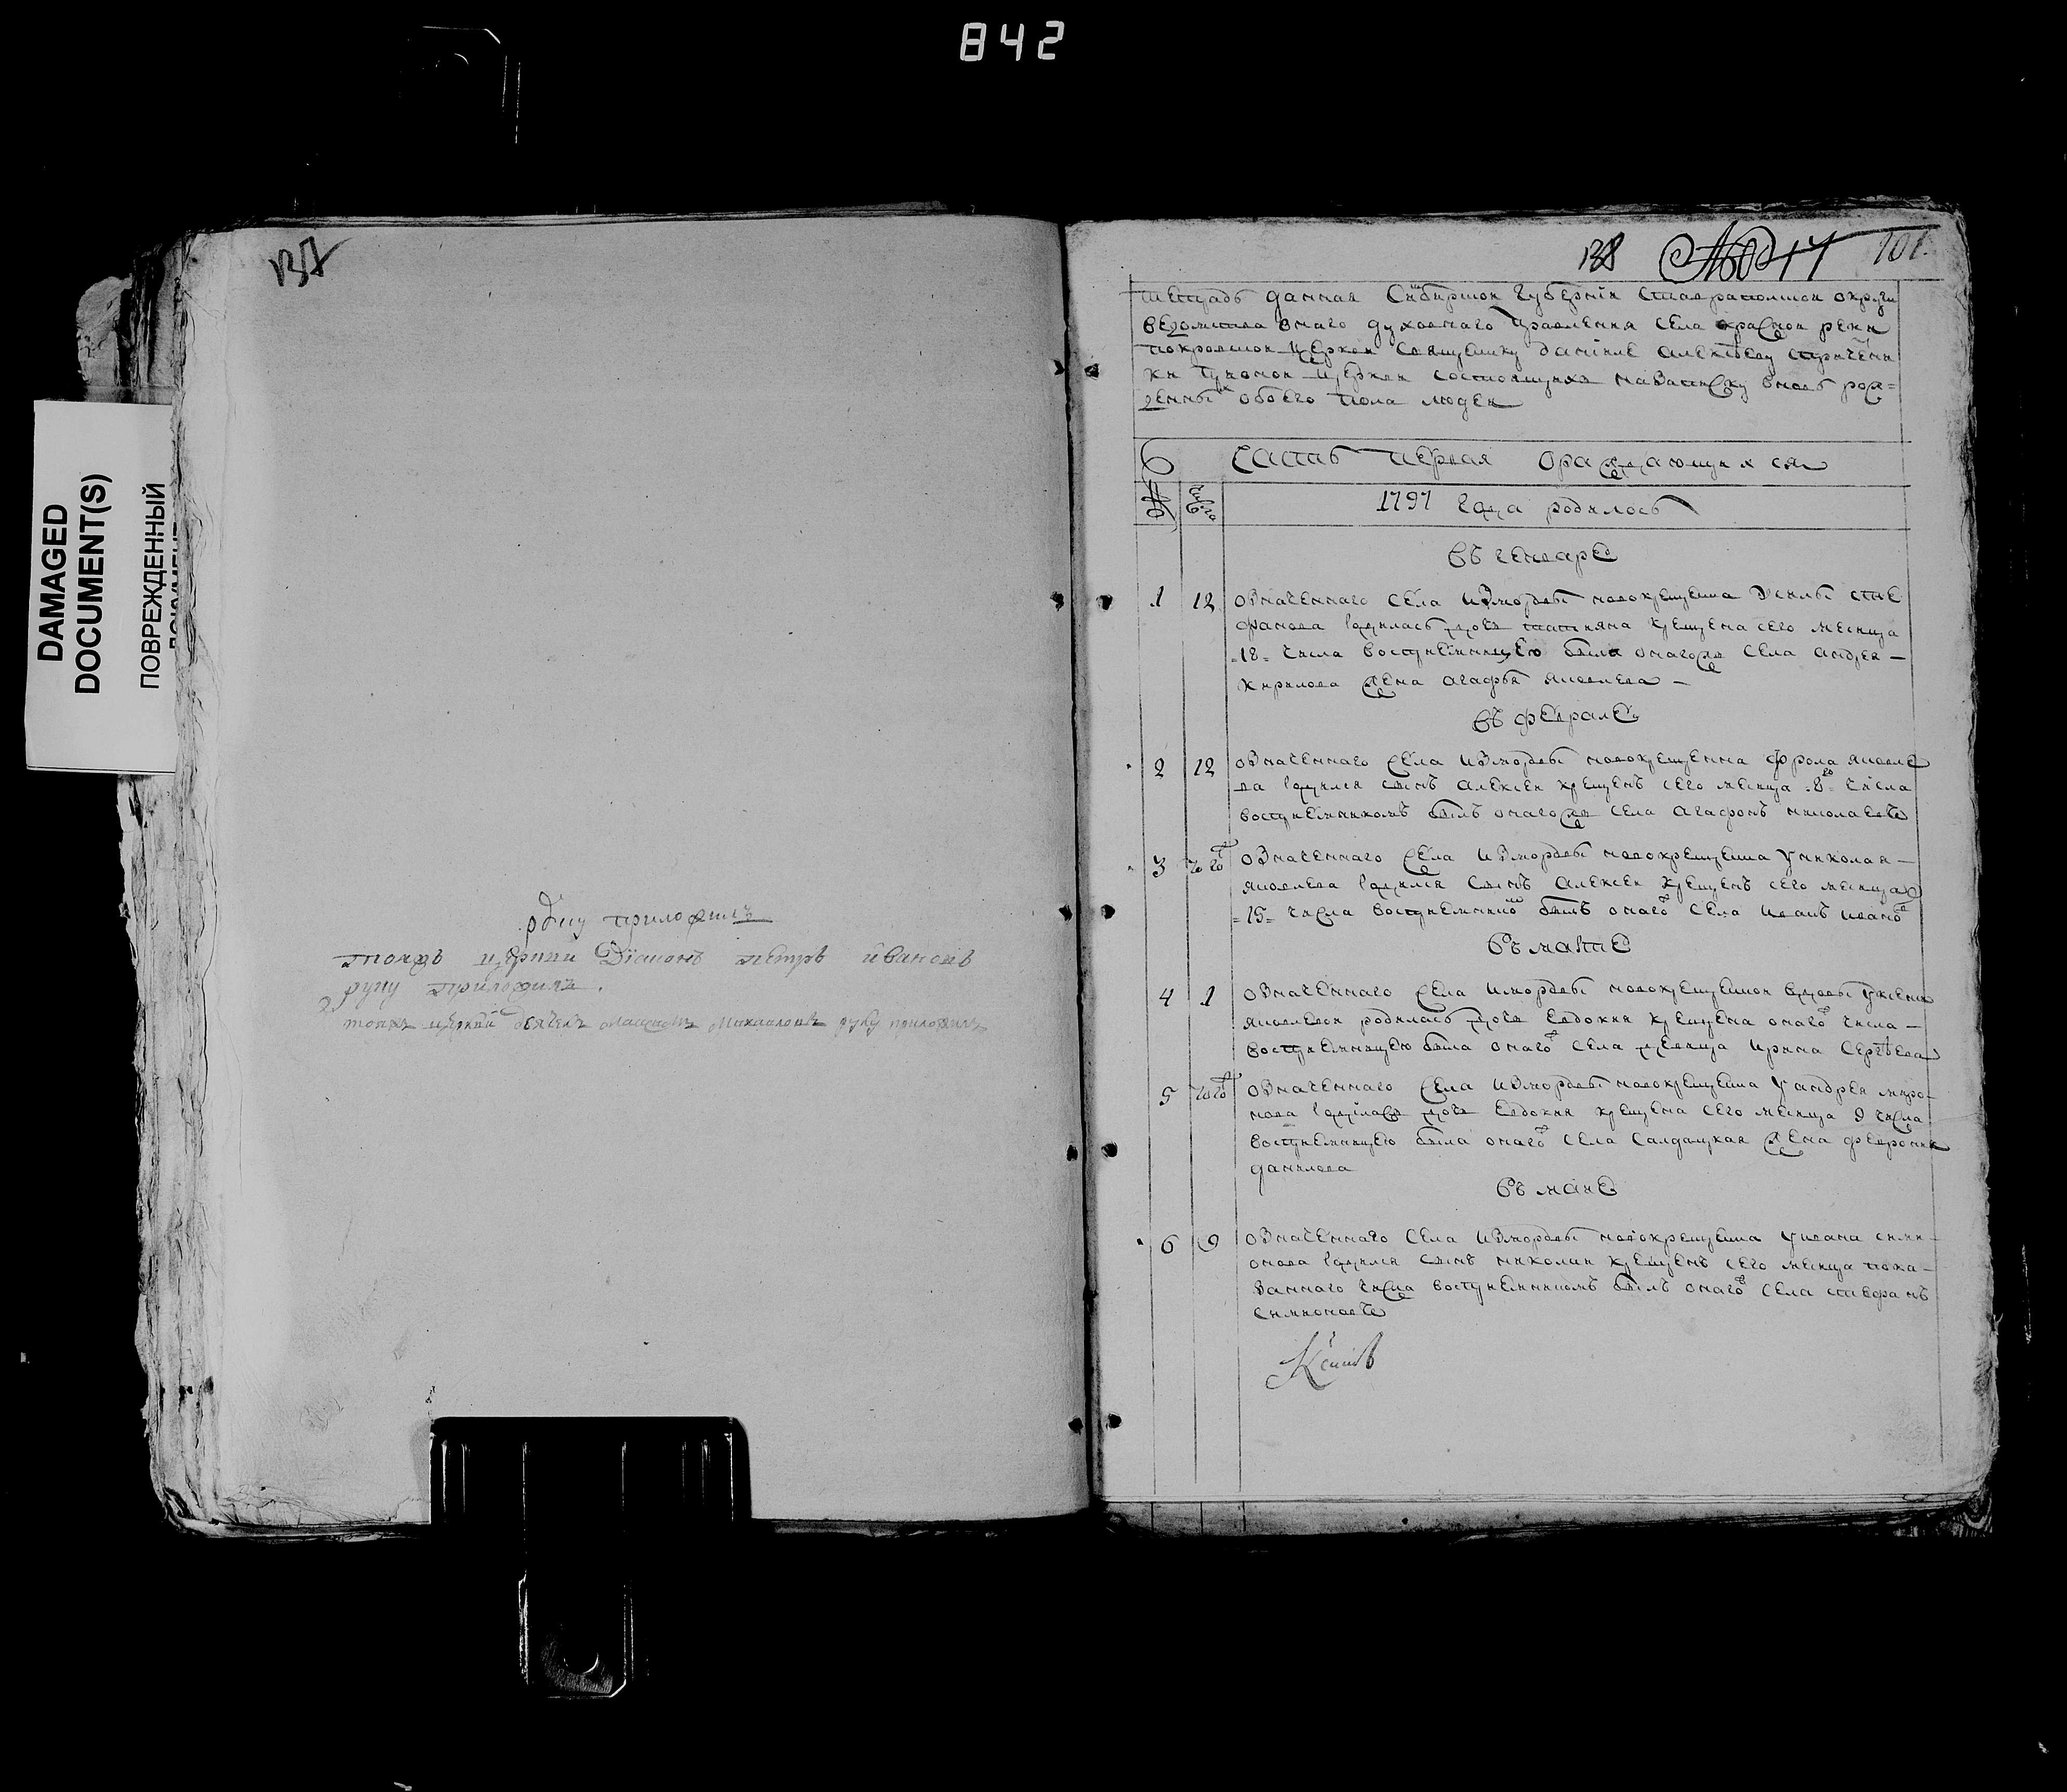 842
DAMAGED
DOCUMENT(S)
ПОВРЕЖДЕННЫЙ
137
руку приложилъ
тояжъ церкви Дiаконъ петръ ивановъ
руку приложилъ.
тояжъ церкви дьячекъ Михаиловъ руку приложилъ
138 101
тетрадь данная Симбирской губернiи ставрапольской округи
ведомства онаго духовнаго правления села красной реки
покровской церкви священнику данiиле алексееву спричетни
ки прионой церкви состоящихъ назаписку вновь рож=
денныхъ обоего пола людей
часть первая ораждающихся
№ число
1797 года родилось
въ генваре
1 12 означеннаго села измордвы новокрещена сте
фанова родилась дочь татияна крещена сего месеца
=18= числа восприемницею была онагожъ села андрея —
кирилова жена агафья яковлева —
въ феврале
2 12 означеннаго села измордвы новокрещенна фрола яковле
ва родился сынъ алексей крещенъ сего месеца числа
восприемникомъ былъ онагожъ села агафонъ николаевъ
3 того означеннаго села измордвы новокрещена униколая —
яковлева родился сынъ алексей крещенъ сего месеца
=15= числа восприемникомъ былъ онагожъ села иванъ ивановъ
въ марте
4 1 означеннаго села имордвы новокрещеной вдовы уксеньи
яковлевой родилась дочь евдокия крещена онагожъ числа —
восприемницею была онагожъ села девица ирина сергѣева
5 того означеннаго села измордвы новокрещена уандрея миро-
нова родiлась дочь евдокия крещена сего месеца 9 числа
восприемницею была онагожъ села салдацкая жена феврония
данилова
въ маие
6 9 означеннаго села измордвы новокрещена уивана сими-
онова родился сынъ николаи крещенъ сего месеца пока-
заннаго числа восприемникомъ былъ онагожъ села стефанъ
симионовъ